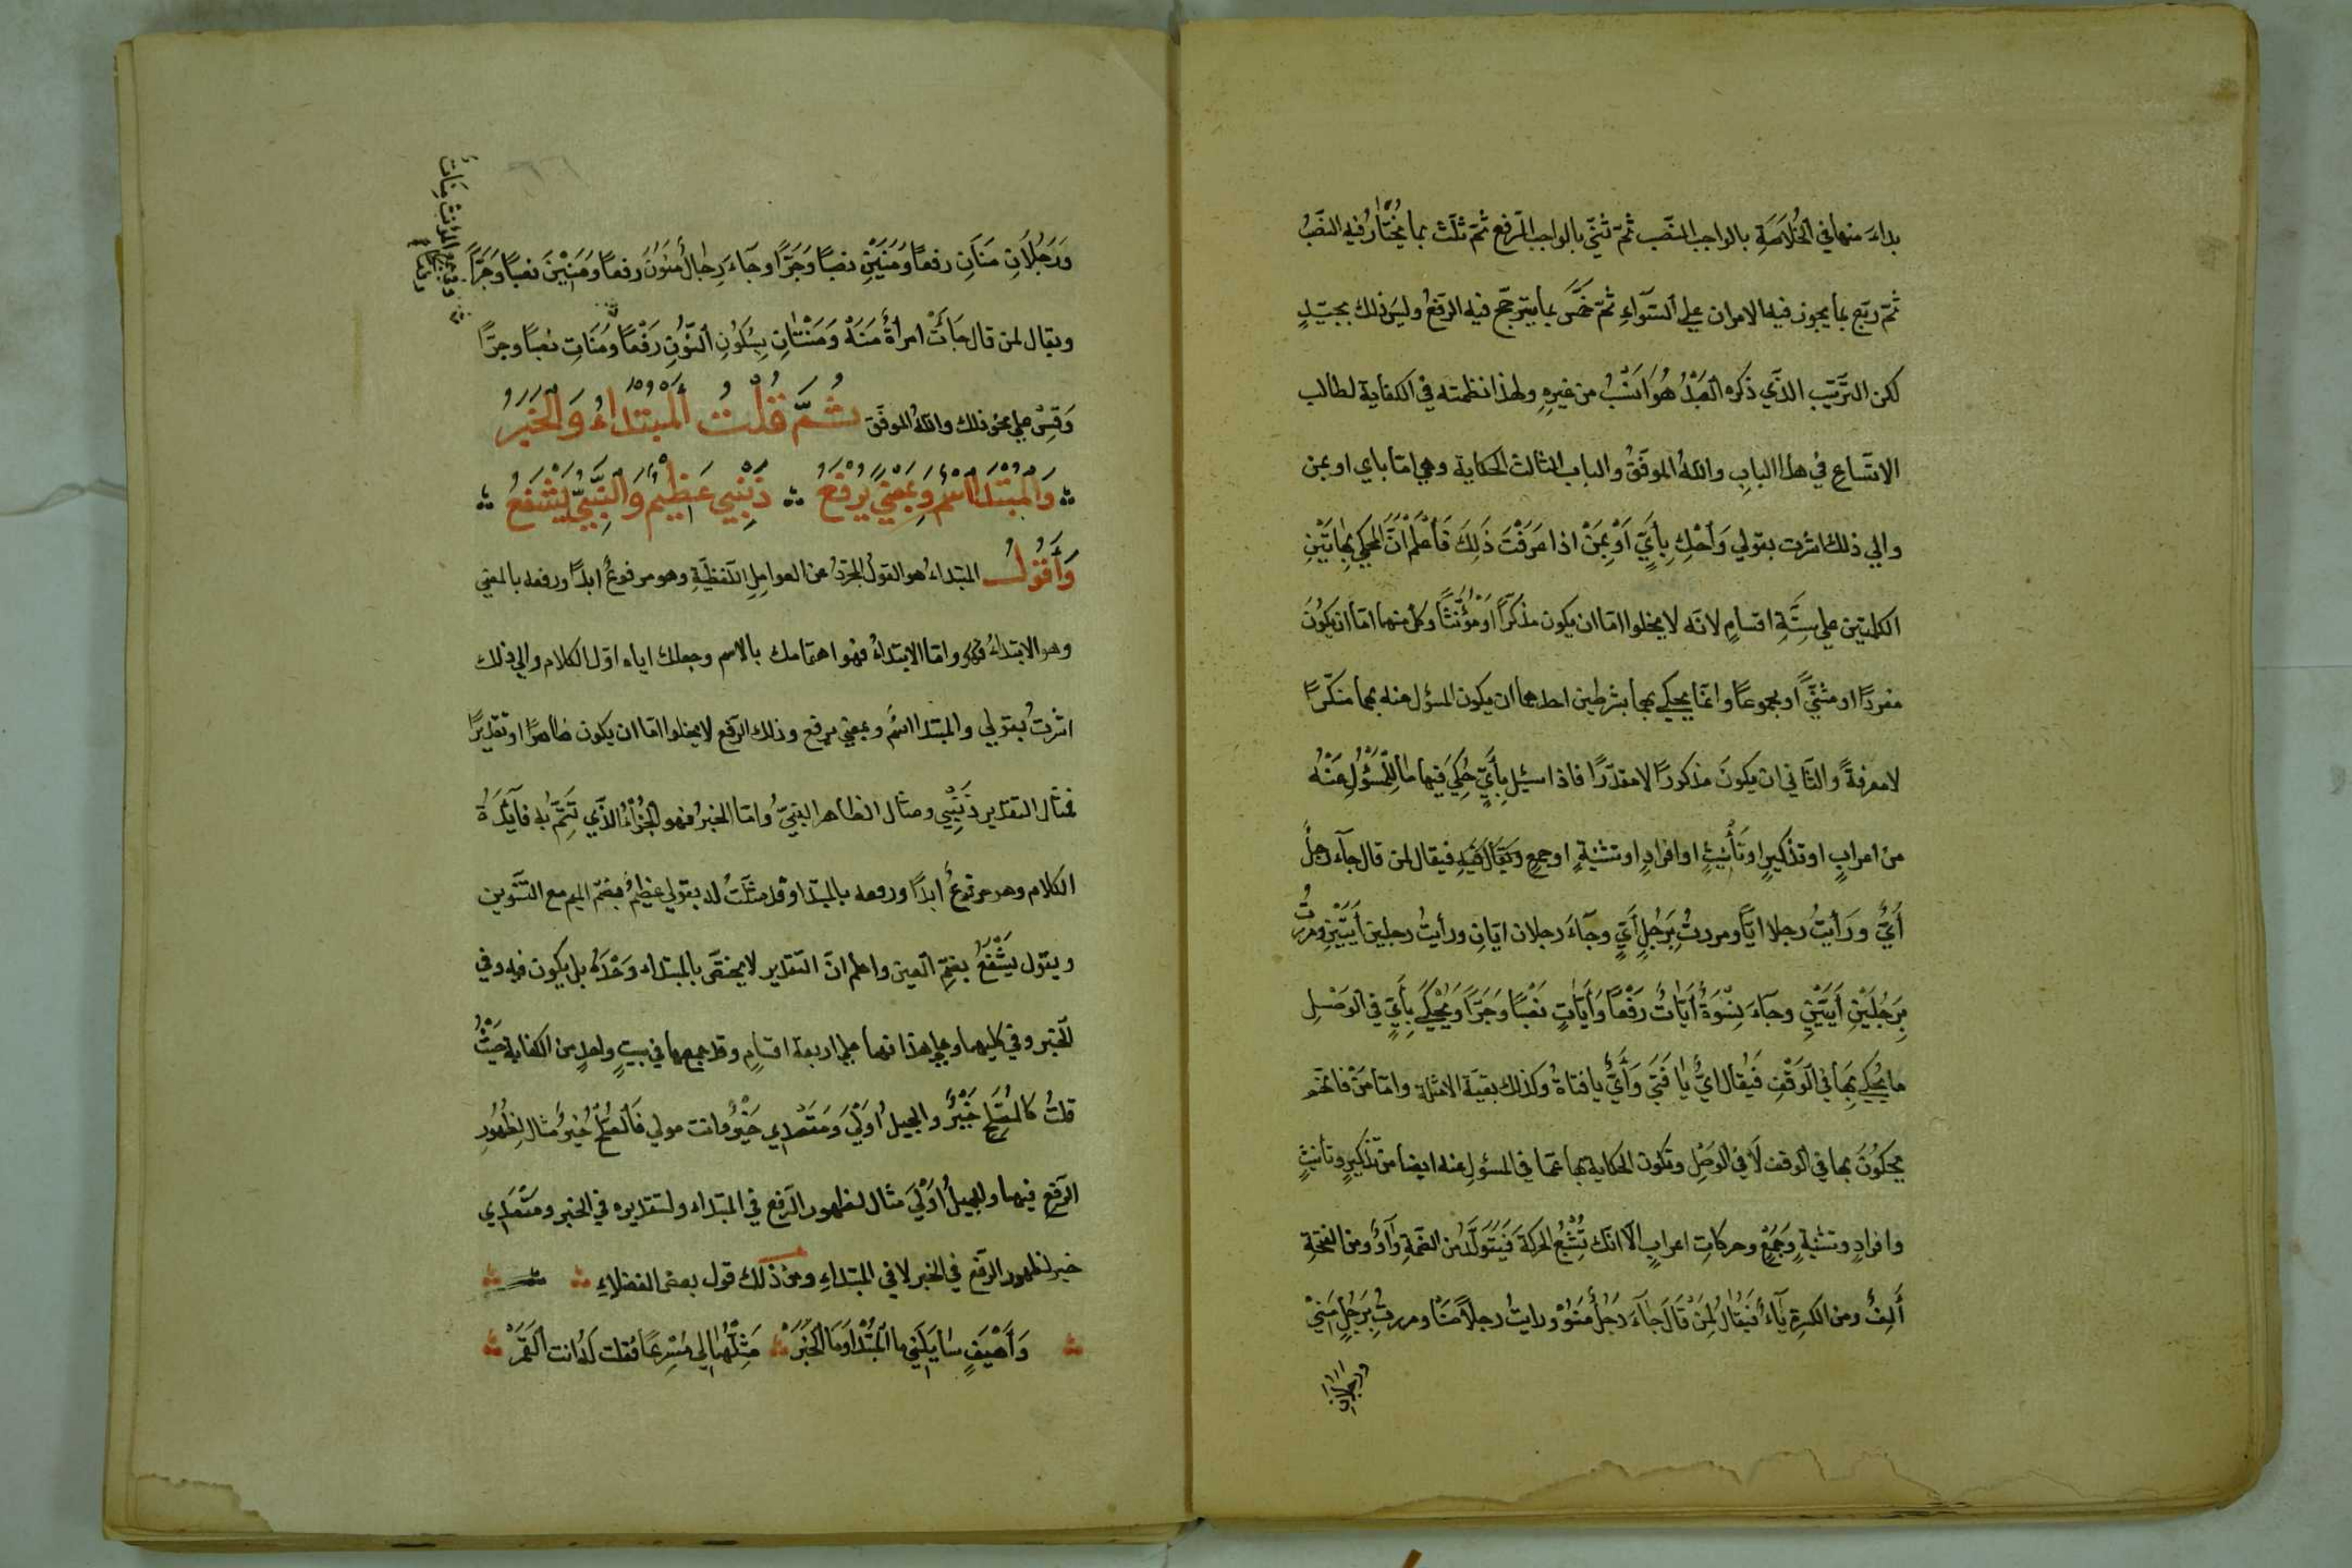 بداء منها في الخُلَاصَةِ بالواجب النصب ثمّ ثنّي بالواجب الرفع ثمّ ثلّث بما يُختَارُ فيه النصَبُ
ثمّ ربّع بما يجوز فيه الامران علي السَّوَآءِ ثمّ خمَّسَ بما يترجّح فيه الرفعُ وليسَ ذلك بجيّدٍ
لكن الترَّتيب الذَّي ذكره العَبْدُ هُوَ انَسْبُ من غيرِهِ ولهذا نظمته في الكفاية لطالب
الاتّساعِ في هذا البابِ واللهُ الموفّقُ والباب الثالث الحكاية وهي امّا باي او بمن
والي ذلك اشرت بقولي وَأحْكِ بِأيٍّ اَوْ بِمَنْ اذا عَرَفْتَ ذَلِكَ فَأعْلَمْ انَّ المحكي بِهَاتَيْنِ
الكلمتين علي سِتَّةِ اقسامٍ لانّه لا يخلوا امّا ان يكون مذكّرًا اوَ مُؤَنَّثًا وكلّ منهما امّا ان يكُونَ
مفردًا او مثنّيً او مجموعًا وانّما يحكي بهما بشرطين احدهما ان يكون المسؤل عنه بهما منكّرًا
لا معرفةً والثّاني ان يكونَ مذكورًا لا مقدّرًا فاذا سئيل بِأيٍّ حُكِيَ فيها مَا لِلْمَسْؤُلِ عَنْهُ
من اعرابٍ او تذكيرٍ او تَأنْيثٍ او افرادٍ او تثنيةٍ او جمعٍ فيقال لمن قال جآء رجلٌ
أيٌّ ورَأيتُ رجلا ايًّا ومررتُ بِرَجُلٍ أيٍّ وجآءَ رجلان ايّانِ ورأيتُ رجلين أيَّيْنِ ومررتُ
بِرَجُلَيْنِ أيَّيْنِ وجآءَ نِسْوَةٌ أيّاتٌ رَفْعًا وَأيَّاتٍ نَصْبًا وَجَرًّا وَيُحْكَي بِأيٍّ في الوَصْلِ
ما يُحكي بِهَا في الوَقْفِ فَيُقال ايٌّ يا فَتَي وَأيٌّ يا فتاةُ وكذلك بقيّة الامثلة وامّا مَنْ فانّهم
يحكُونَ بها في الوقف لَا في الوصْلِ وتكون الحكاية بها عمّا في المسؤل عنه ايضا من تذكيرٍ وتأنيثٍ
وافرادٍ وتثنيةٍ وَجَمْعٍ وحركاتِ اعرابٍ الّا انّك تُشْبِعُ الحركة فَيَتَوَلَّدُ من الضّمةِ وَاوٌ ومن الفتحةِ
ألِفٌ ومن الكسرةِ يآءٌ فَيُقالُ لِمَنْ قَالَ جآءَ رَجُلٌ مَنُوْ ورايتُ رجلاً مَنَا ومررتُ بِرَجُلٍ مَنيْ
ورجلانِ
وَرَجُلَانِ مَنَانِ رفعًا وَمَنَيْنِ نصبًا وَجَرًّا وجآءَ رِجَالٌ مَنُونَ رفعًا وَمَنِيْنَ نصبًا وَجَرًّا
ويقال لمن قال جَآتْ امرأةٌ مَنَهْ وَمَنْتَانِ بِسُكُونِ النّوُنِ رَفْعًا وَمَنَاتِ نصبًا وجرًّا
وَقِسْ علي نحو ذلك واللهُ الموفّق ثُمَّ قُلْتُ المُبْتَدَاءُ وَالخَبَرُ
وَالمُبْتَدَا اسْمٌ وَبِمَعْنيً يُرْفَعُ ذَنْبِي عَظِيْمٌ وَالنَّبِيُّ يَشْفَعُ
وَأقُولُ المبتداءُ هو القولُ المجرّدُ عن العوامِلِ اللّفظيَّةِ وهو مرفوعٌ ابدًا ورفعه بالمعني
وهو الابتداءُ وامّا الابتداءُ فهو اهتمامك بالاسم وجعلك اياه اوّل الكلام والي ذلك
اشرتُ بقولي والمبتدا اسمٌ وبمعني يرفع وذلك الرّفع لا يخلوا امّا ان يكون ظاهرًا او تقديرًا
فمثال التقدير ذَنْبِي ومثال الظاهر النبيّ وامّا الخبرُ فهو الجُزْءُ الذّي تَتِمُّ به فآئدَةُ
الكلام وهو مرفوعٌ ابدًا ورفعه بالمبتدا وقد مثّلتُ له بقولي عظيمٌ بضمّ الميم مع التنّوين
ويقول يَشْفَعُ بضمّ العين واعلم انّ التقدير لا يختصّ بالمبتداء وَحْدَهُ بل يكون فيه وفي
الخبر وفي كليهما وعلي هذا فهما علي اربعة اقسامٍ وقد جمعها في بيتٍ واحدٍ من الكفاية حَيْثُ
قلتُ كَالصُّلْحِ خَيْرٌ والجميلُ اوَلَيَ وَمَقْصدي خَيْرٌ وانت مولي فَالصُّلْحُ خيرٌ مثال لِظُهُورِ
الرّفع فيهما والجميلُ اوَلَي مثال لظهور الرّفع في المبتداء ولتقديره في الخبر ومَقْصَدي
خير لظهور الرّفع في الخبر لا في المبتداءِ ومن ذلك قول بعض الفضلاءِ
وَأهْيَفٍ سٰايَلَنِي ما المُبْتَدا وَمَا الخَبَرْ مَثِّلْهُمَا لِي مُسْرِعًا فقلت لَهُ انت القَمَرْ